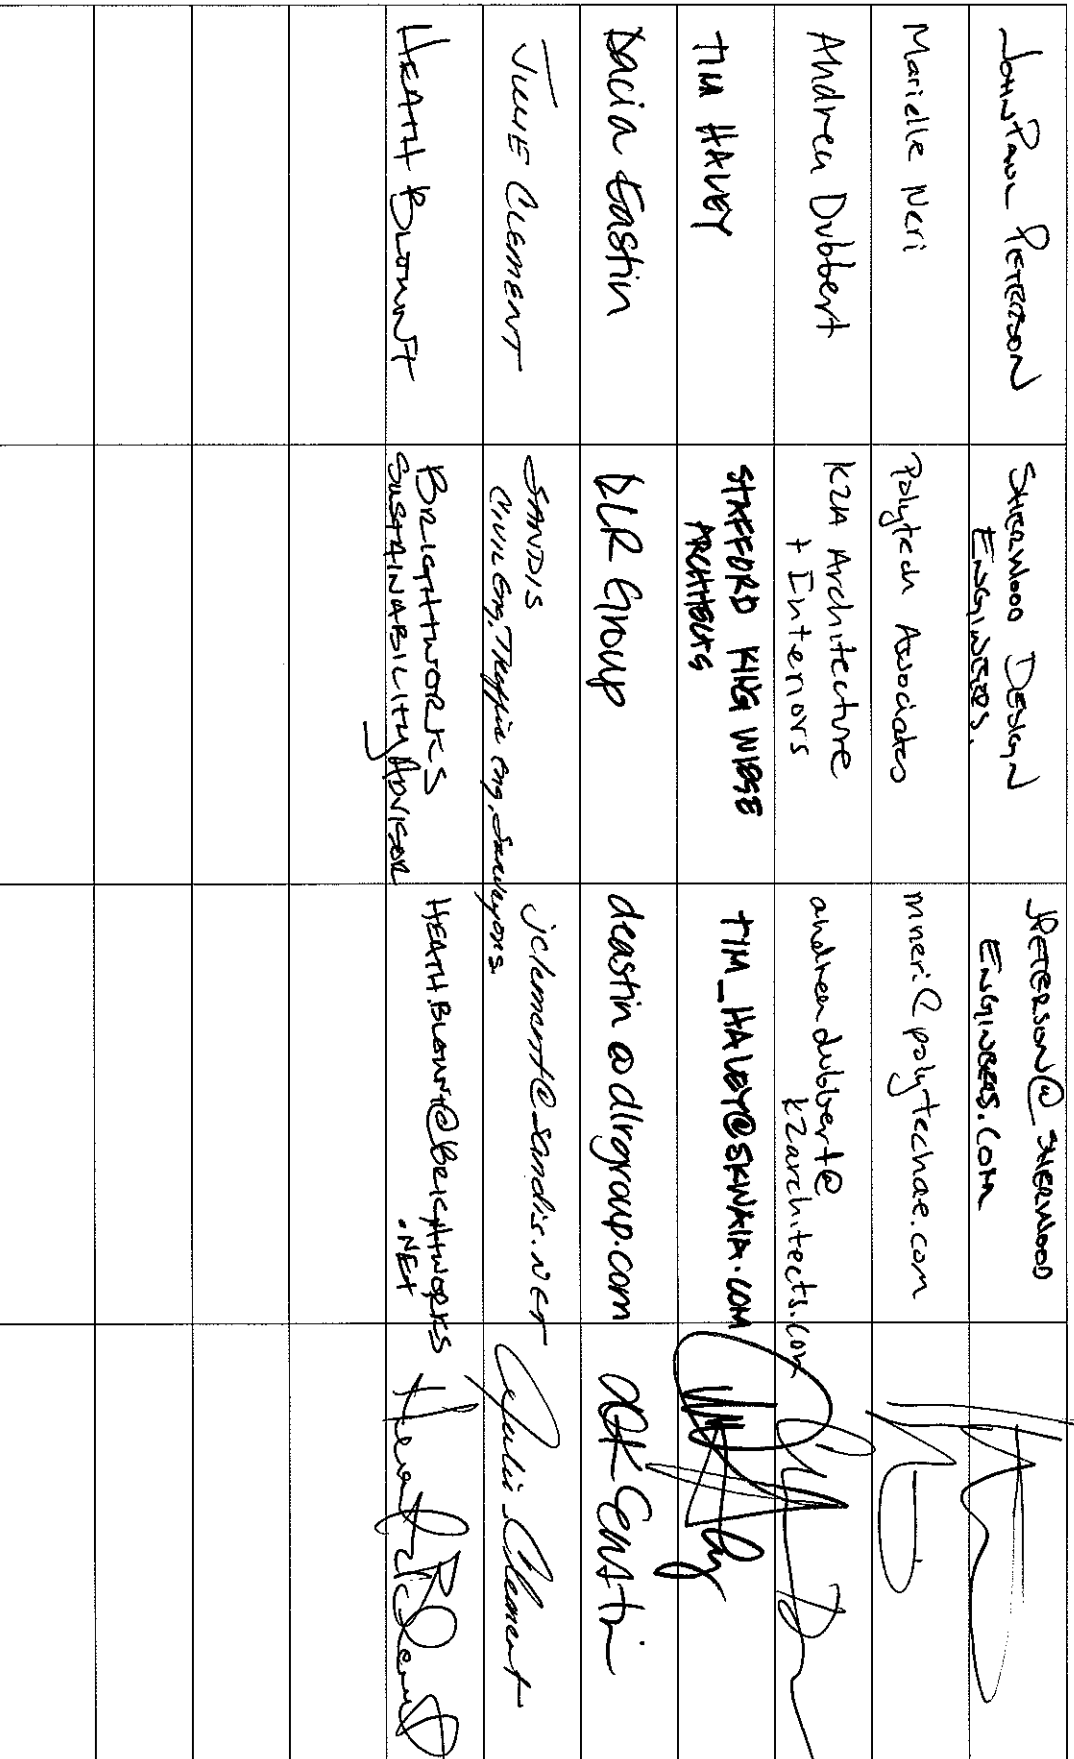 JOHN PAUL PETERSON
SHERWOOD DESIGN
ENGINEERS.
JPETERSON@SHERWOOD
ENGINEERS.COM
Marielle Neri
Polytech Associates
mneri@polytechae.com
Andrea Dubbert
K2A Architecture
+ Interiors
andreadubbert@
k2architects.com
TIM HALEY
STAFFORD KING WIESE
ARCHITECTS
TIM_HALEY@SKWAIA.COM
Dacia Eastin
DLR Group
deastin@dlrgroup.com
DK Eastin
JULIE CLEMENT
SANDIS
CIVIL Eng, Traffic Eng, Surveyors
jclement@sandis.net
Julie Clement
HEATH BLOUNT
BRIGHTWORKS
SUSTAINABILITY ADVISOR
HEATH.BLOUNT@BRIGHTWORKS
.NET
Heath Blount